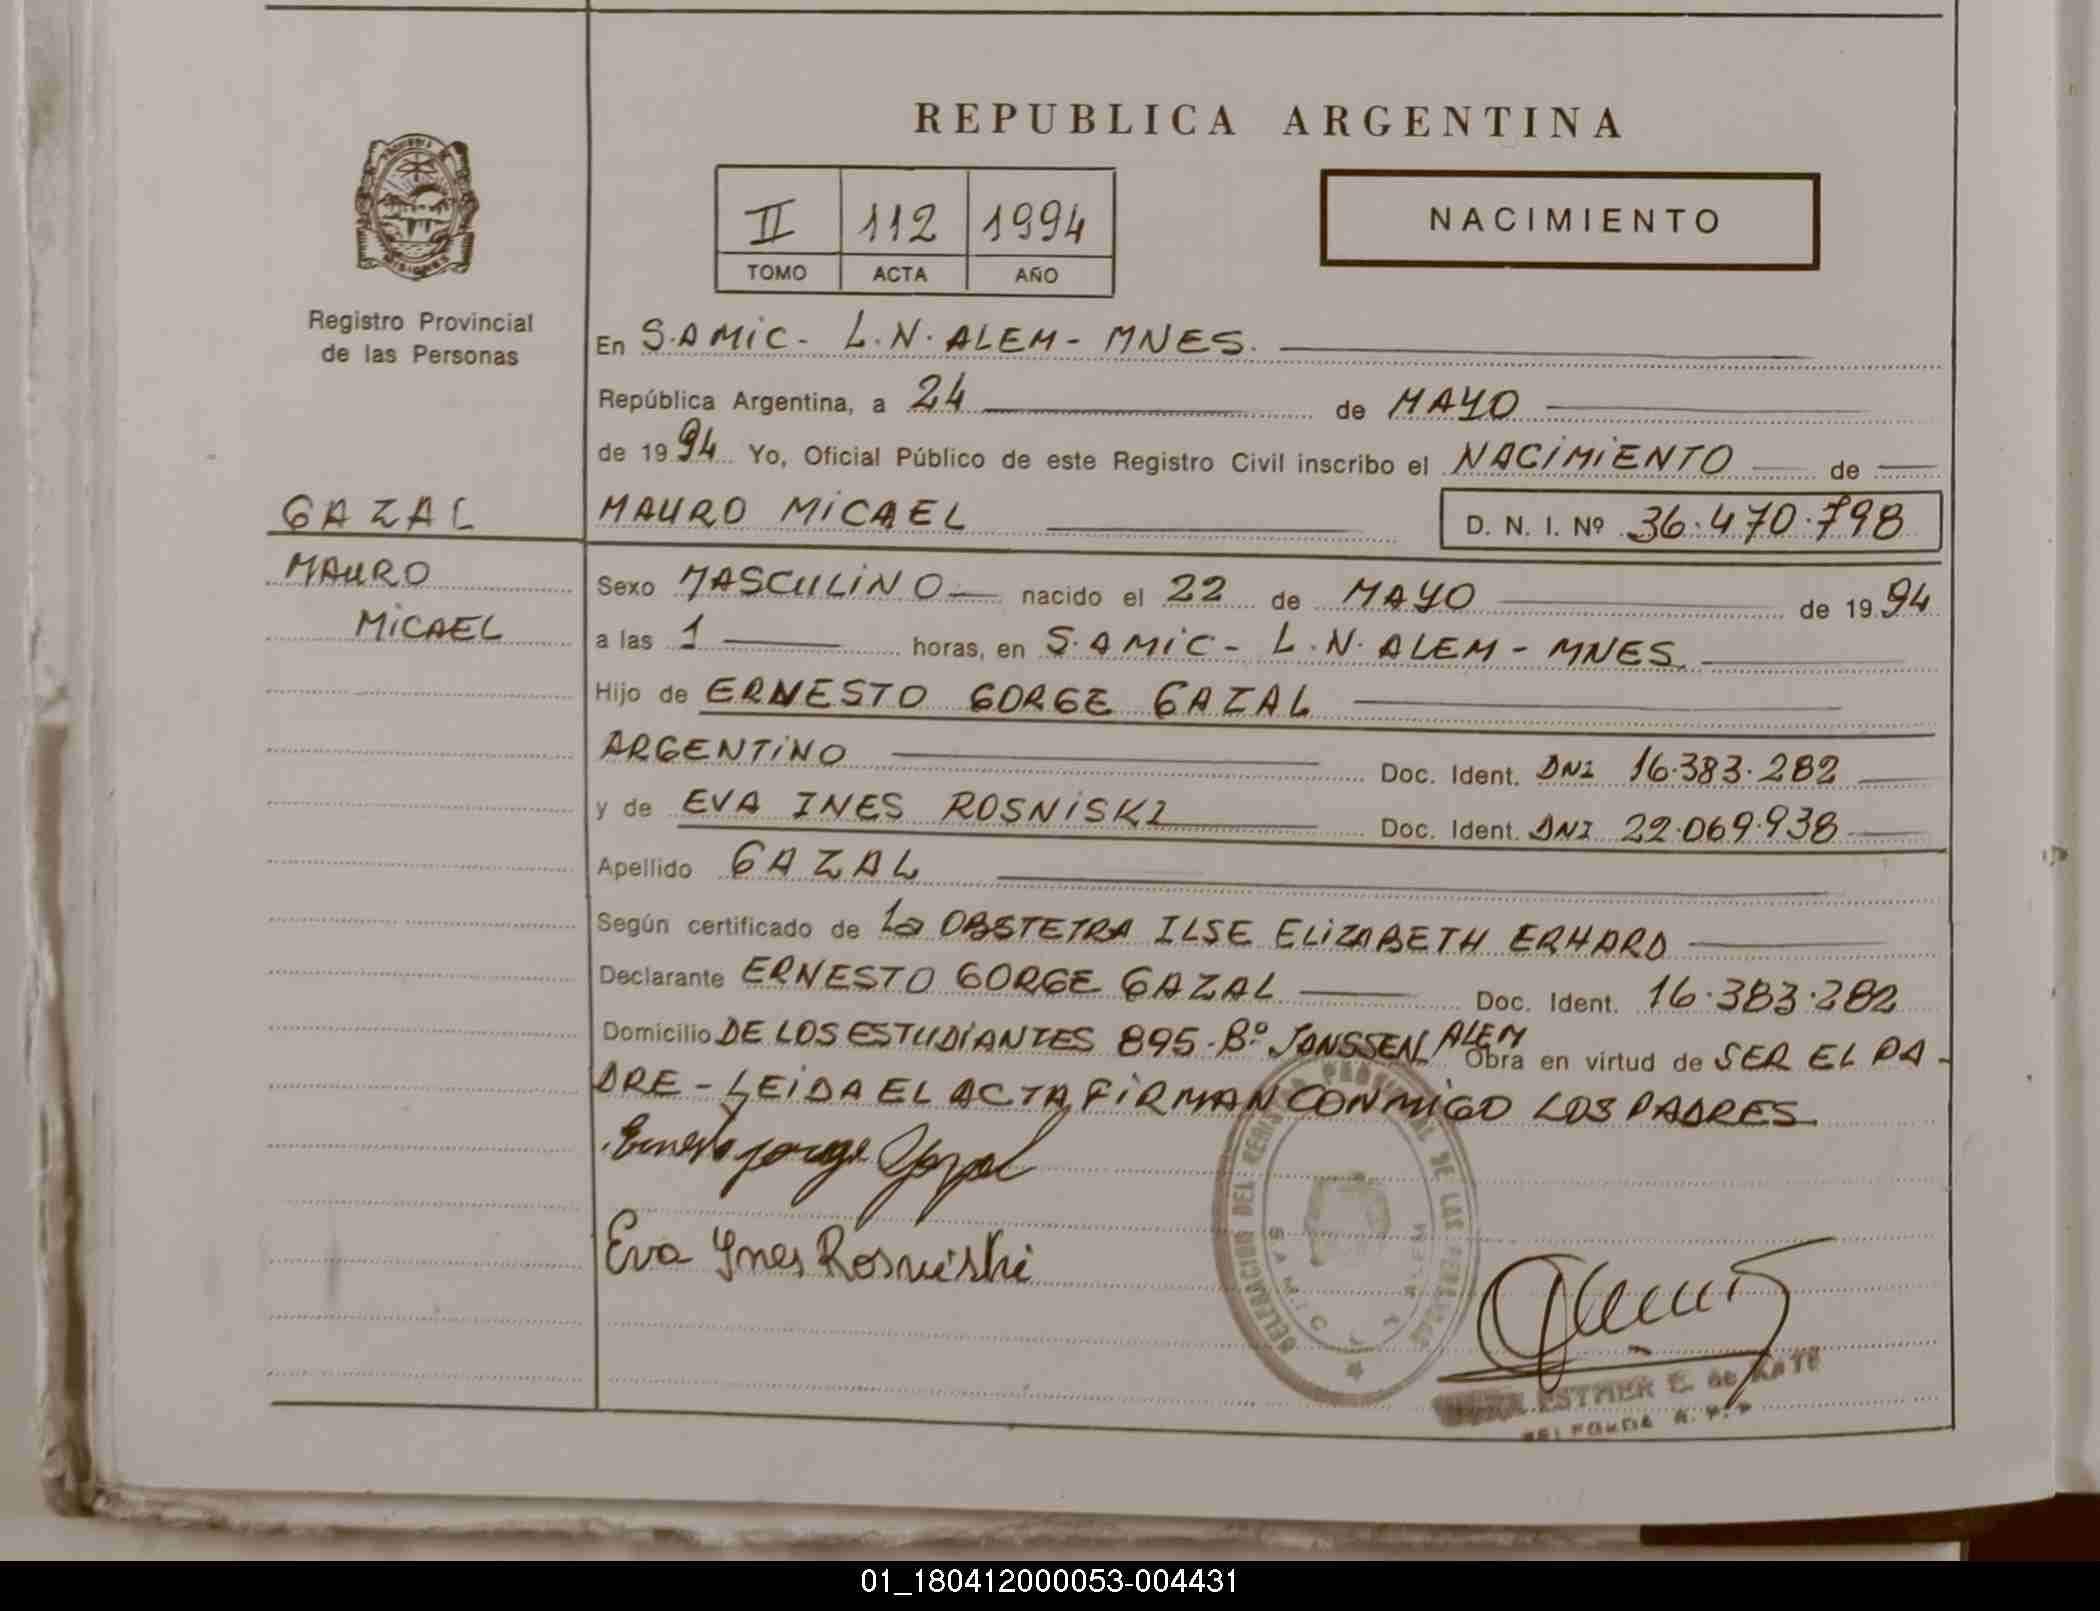 REPUBLICA ARGENTINA
II 112 1994
TOMO ACTA AÑO
NACIMIENTO
Registro Provincial
de las Personas
En S.AMIC - L.N. ALEM - MNES.
República Argentina, a 24 de MAYO
de 1994 Yo, Oficial Público de este Registro Civil inscribo el NACIMIENTO de
GAZAL
MAURO MICAEL D. N. I. Nº 36.470.798
MAURO
MICAEL
Sexo MASCULINO nacido el 22 de MAYO de 1994
a las 1 horas, en S.AMIC - L.N. ALEM - MNES
Hijo de ERNESTO GORGE GAZAL
ARGENTINO Doc. Ident. DNI 16.383.282
y de EVA INES ROSNISKI Doc. Ident. DNI 22.069.938
Apellido GAZAL
Según certificado de La OBSTETRA ILSE ELIZABETH ERHARD
Declarante ERNESTO GORGE GAZAL Doc. Ident. 16.383.282
Domicilio DE LOS ESTUDIANTES 895 - Bº JONSSEN ALEM Obra en virtud de SER EL PA-
DRE - LEIDA EL ACTA FIRMAN CONMIGO LOS PADRES
Ernesto Jorge Gazal
Eva Ines Rosniski
DELEGACION DEL REGISTRO PROVINCIAL DE LAS PERSONAS
ESTHER E. de
01_180412000053-004431